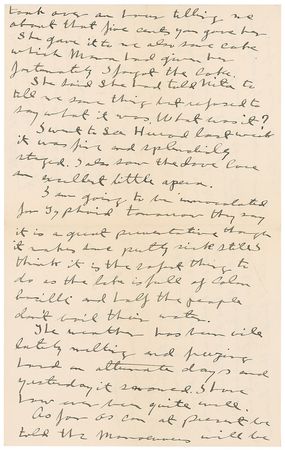 took over an hour telling me
about that five cents you gave her.
She gave it to me also some cake
which Mama had given her
fortunately I forgot the cake.
She said she had told Nita to
tell me some thing but refused to
say what it was. What was it?
I went to see Herod last week
it was fine and splendidly
staged. I also saw the Love Cure
an excellent little opera.
I am going to be innoculated
for Typhoid tomorrow they say
it is a great preventative though
it makes one pretty sick still I
think it is the safest thing to
do as the lake is full of Colon
bacilli and half the people
dont boil their water.
The weather has been vile
lately melting and freezing
hard on alternate days and
yesterday it snowed. I have
however been quite well.
As far as can at present be
told the will be